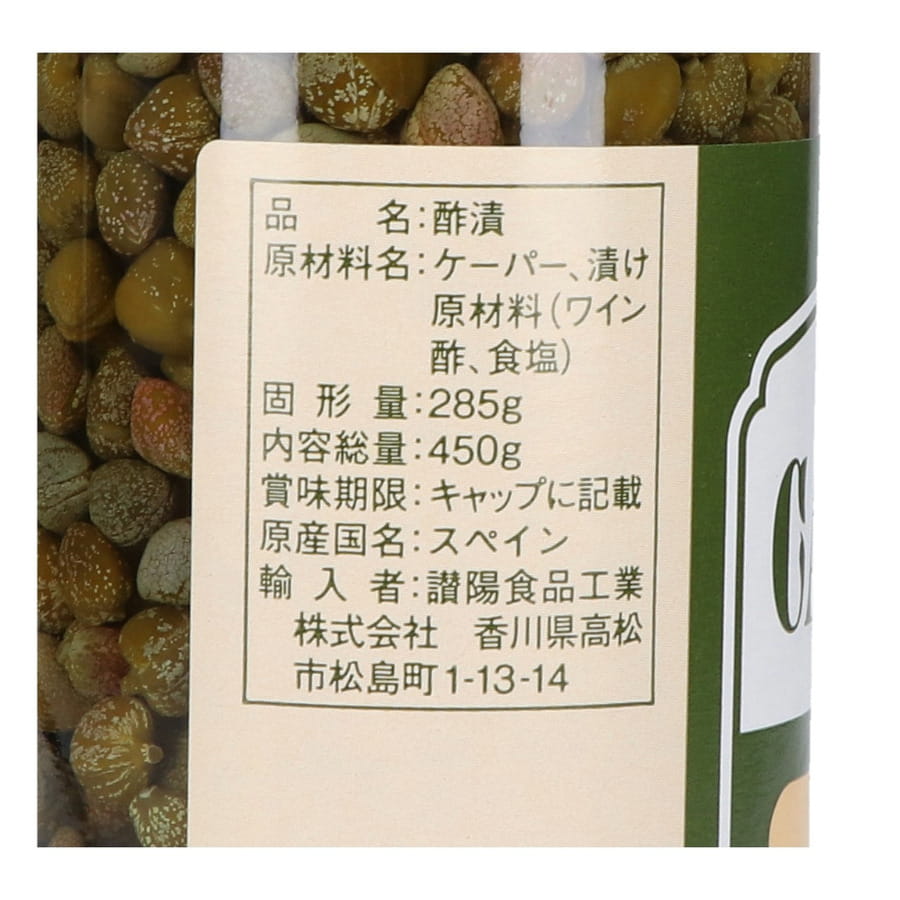 品　　名：酢漬
原材料名：ケーパー、漬け
原材料（ワイン
酢、食塩）
固形量：285g
内容総量：450g
賞味期限：キャップに記載
原産国名：スペイン
輸入者：讃陽食品工業
株式会社　香川県高松
市松島町1-13-14